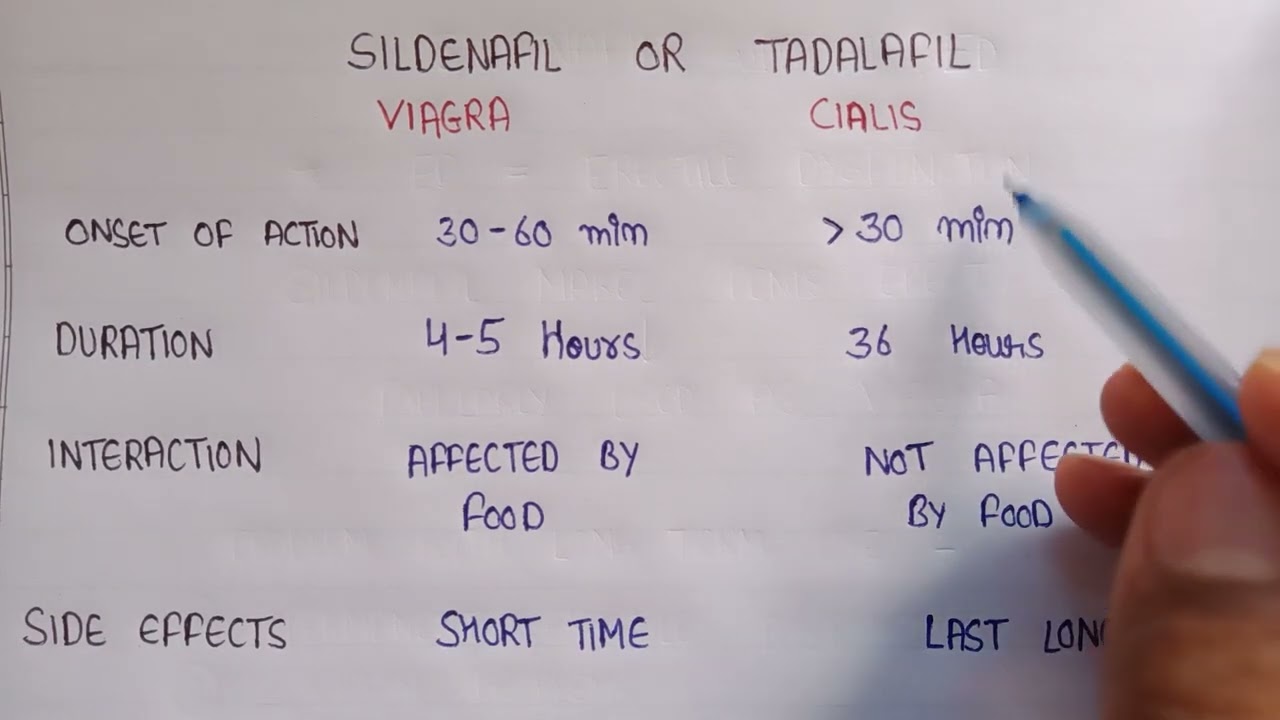 SILDENAFIL OR TADALAFIL
VIAGRA CIALIS
ONSET OF ACTION 30-60 min >30 min
DURATION 4-5 Hours 36 Hours
INTERACTION AFFECTED BY NOT AFFECTED
FOOD BY FOOD
SIDE EFFECTS SHORT TIME LAST